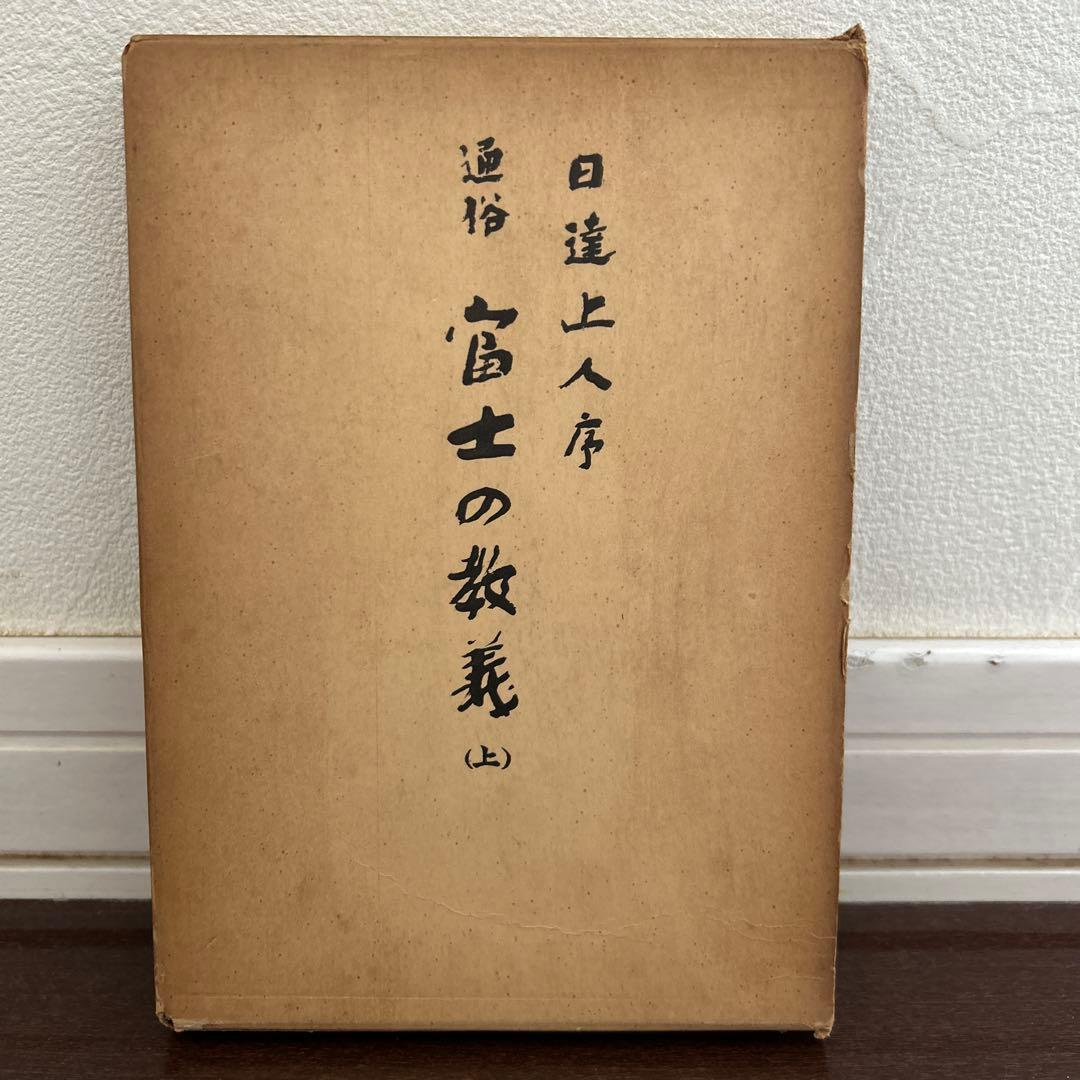 日達上人序
通俗 富士の教義(上)